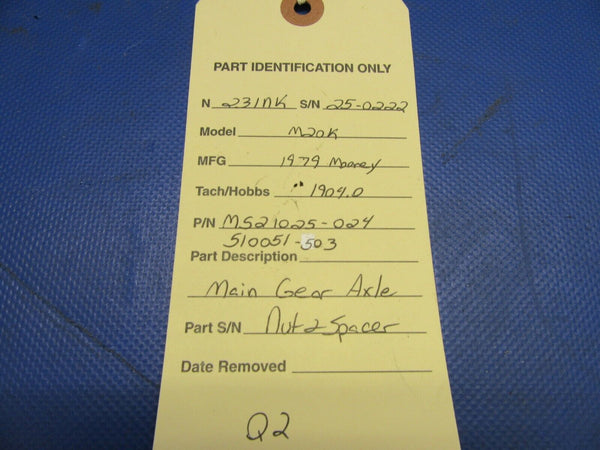 PART IDENTIFICATION ONLY
N 231NK S/N 25-0222
Model M20K
MFG 1979 Mooney
Tach/Hobbs 1904.0
P/N MS21025-024
510051-503
Part Description
Main Gear Axle
Part S/N Nut & Spacer
Date Removed
Q2